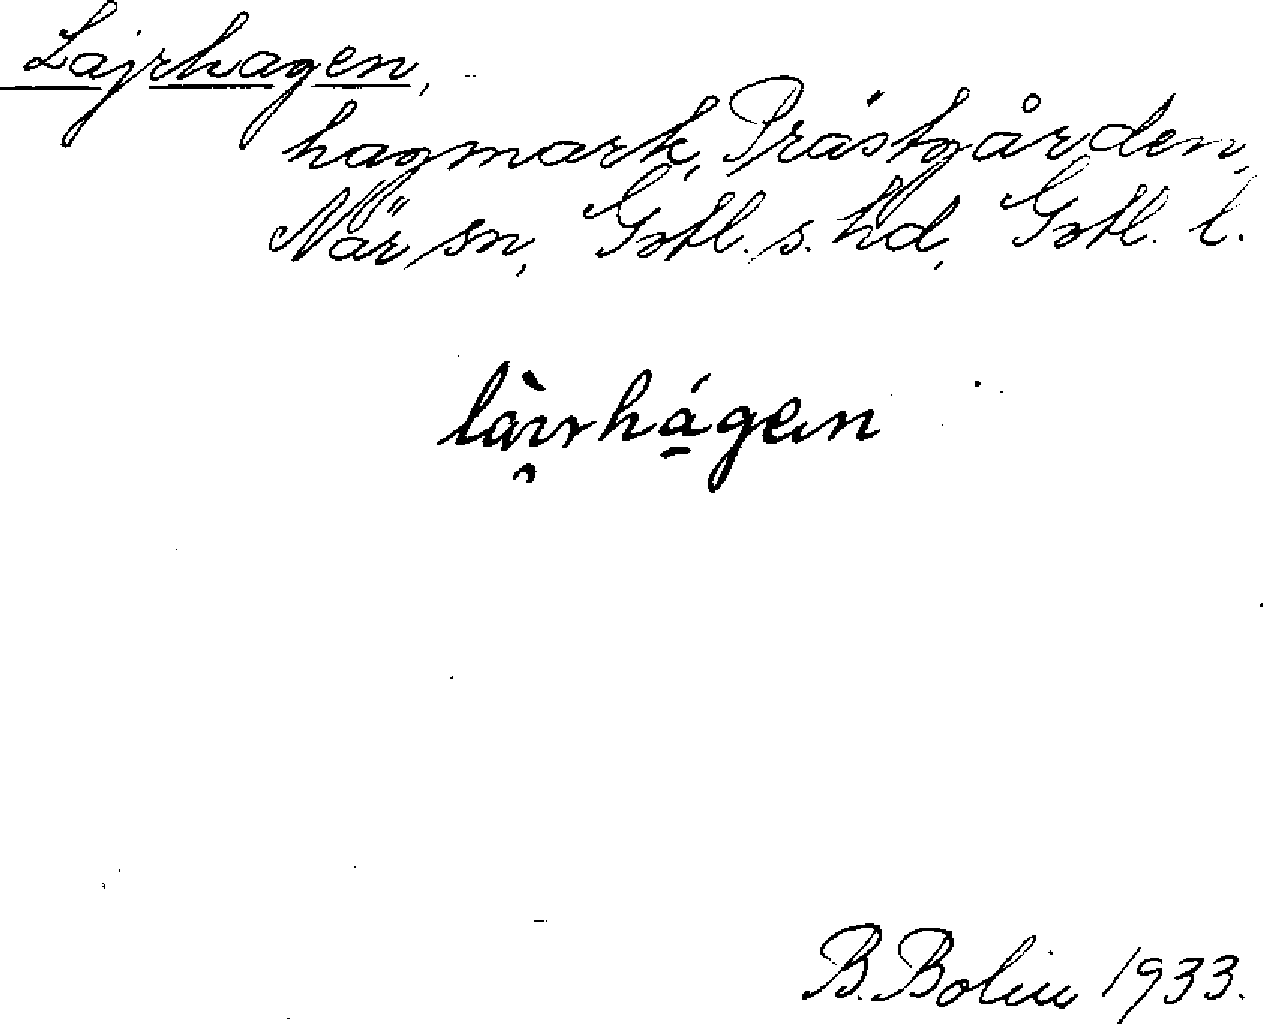 Lajrhagen,
hagmark, Prästgården,
När sn, Gotl. s. hd, Gotl. l.
làɪrhágen
B. Bolin 1933.